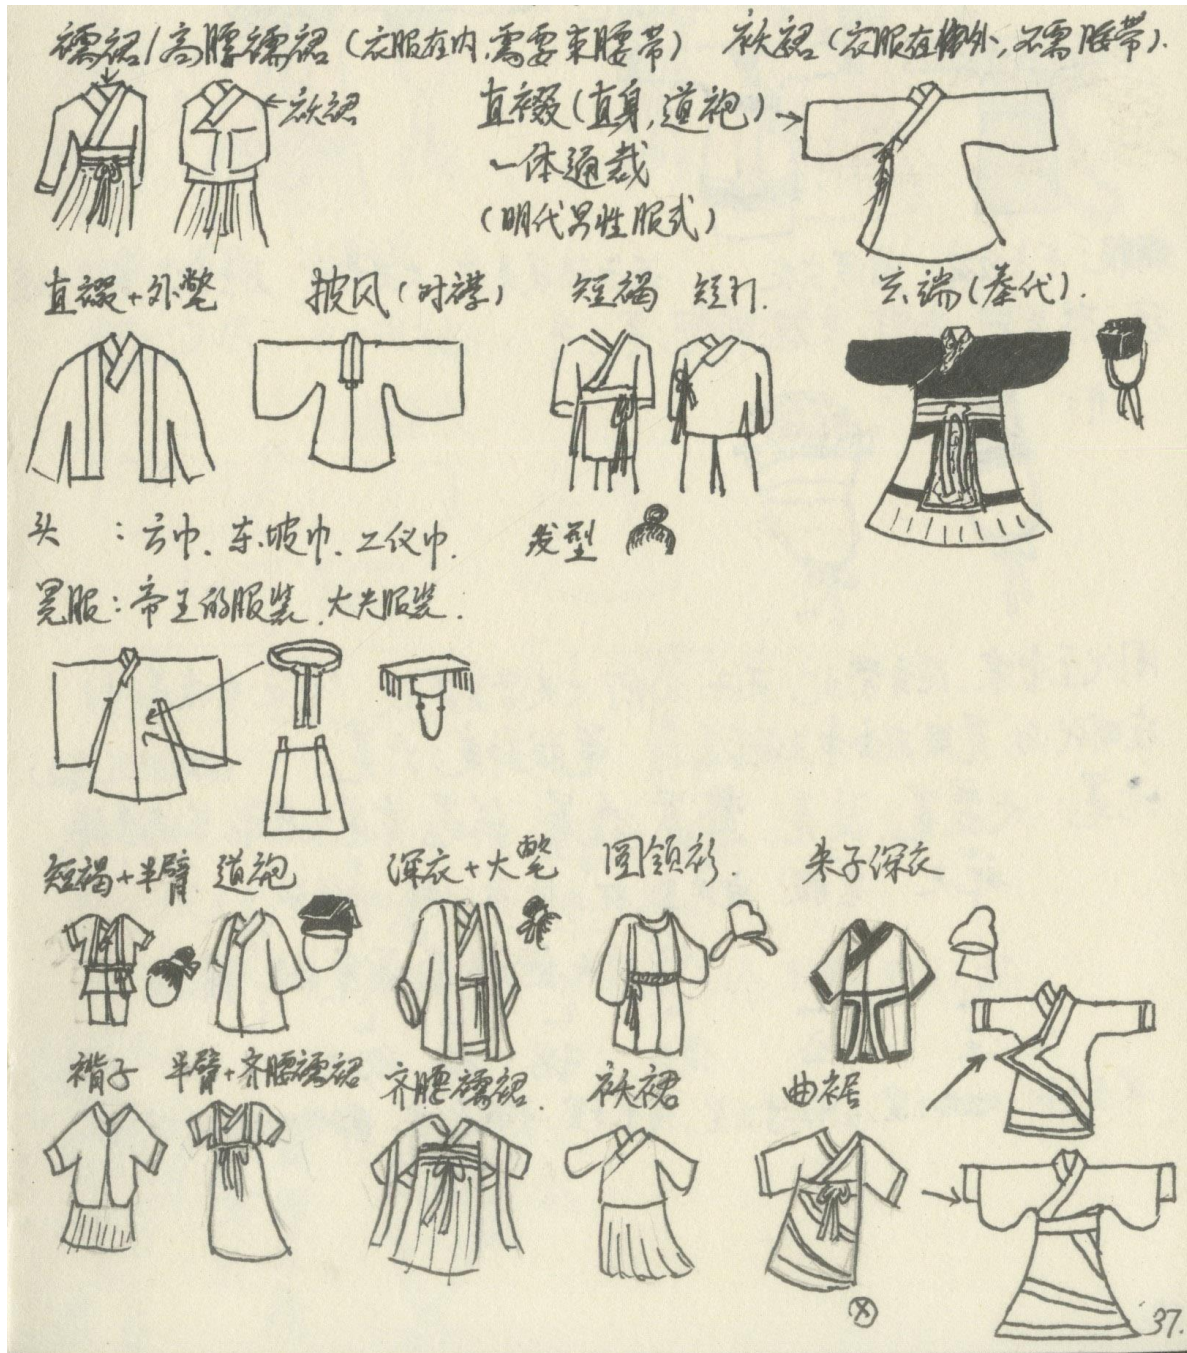 襦裙/高腰襦裙（衣服在内,需要束腰带） 袄裙（衣服在外,不需腰带）.
←袄裙
直裰（直身,道袍）→
一体通裁
（明代男性服式）
直裰+外氅 披风（对襟） 短褐 短打. 玄端（秦代）.
头 ：云巾、东坡巾、工仪巾. 发型
冕服：帝王的服装、大夫服装.
短褐+半臂 道袍 深衣+大氅 圆领衫. 朱子深衣
褙子 半臂+齐腰襦裙 齐腰襦裙. 袄裙 曲裾
37.